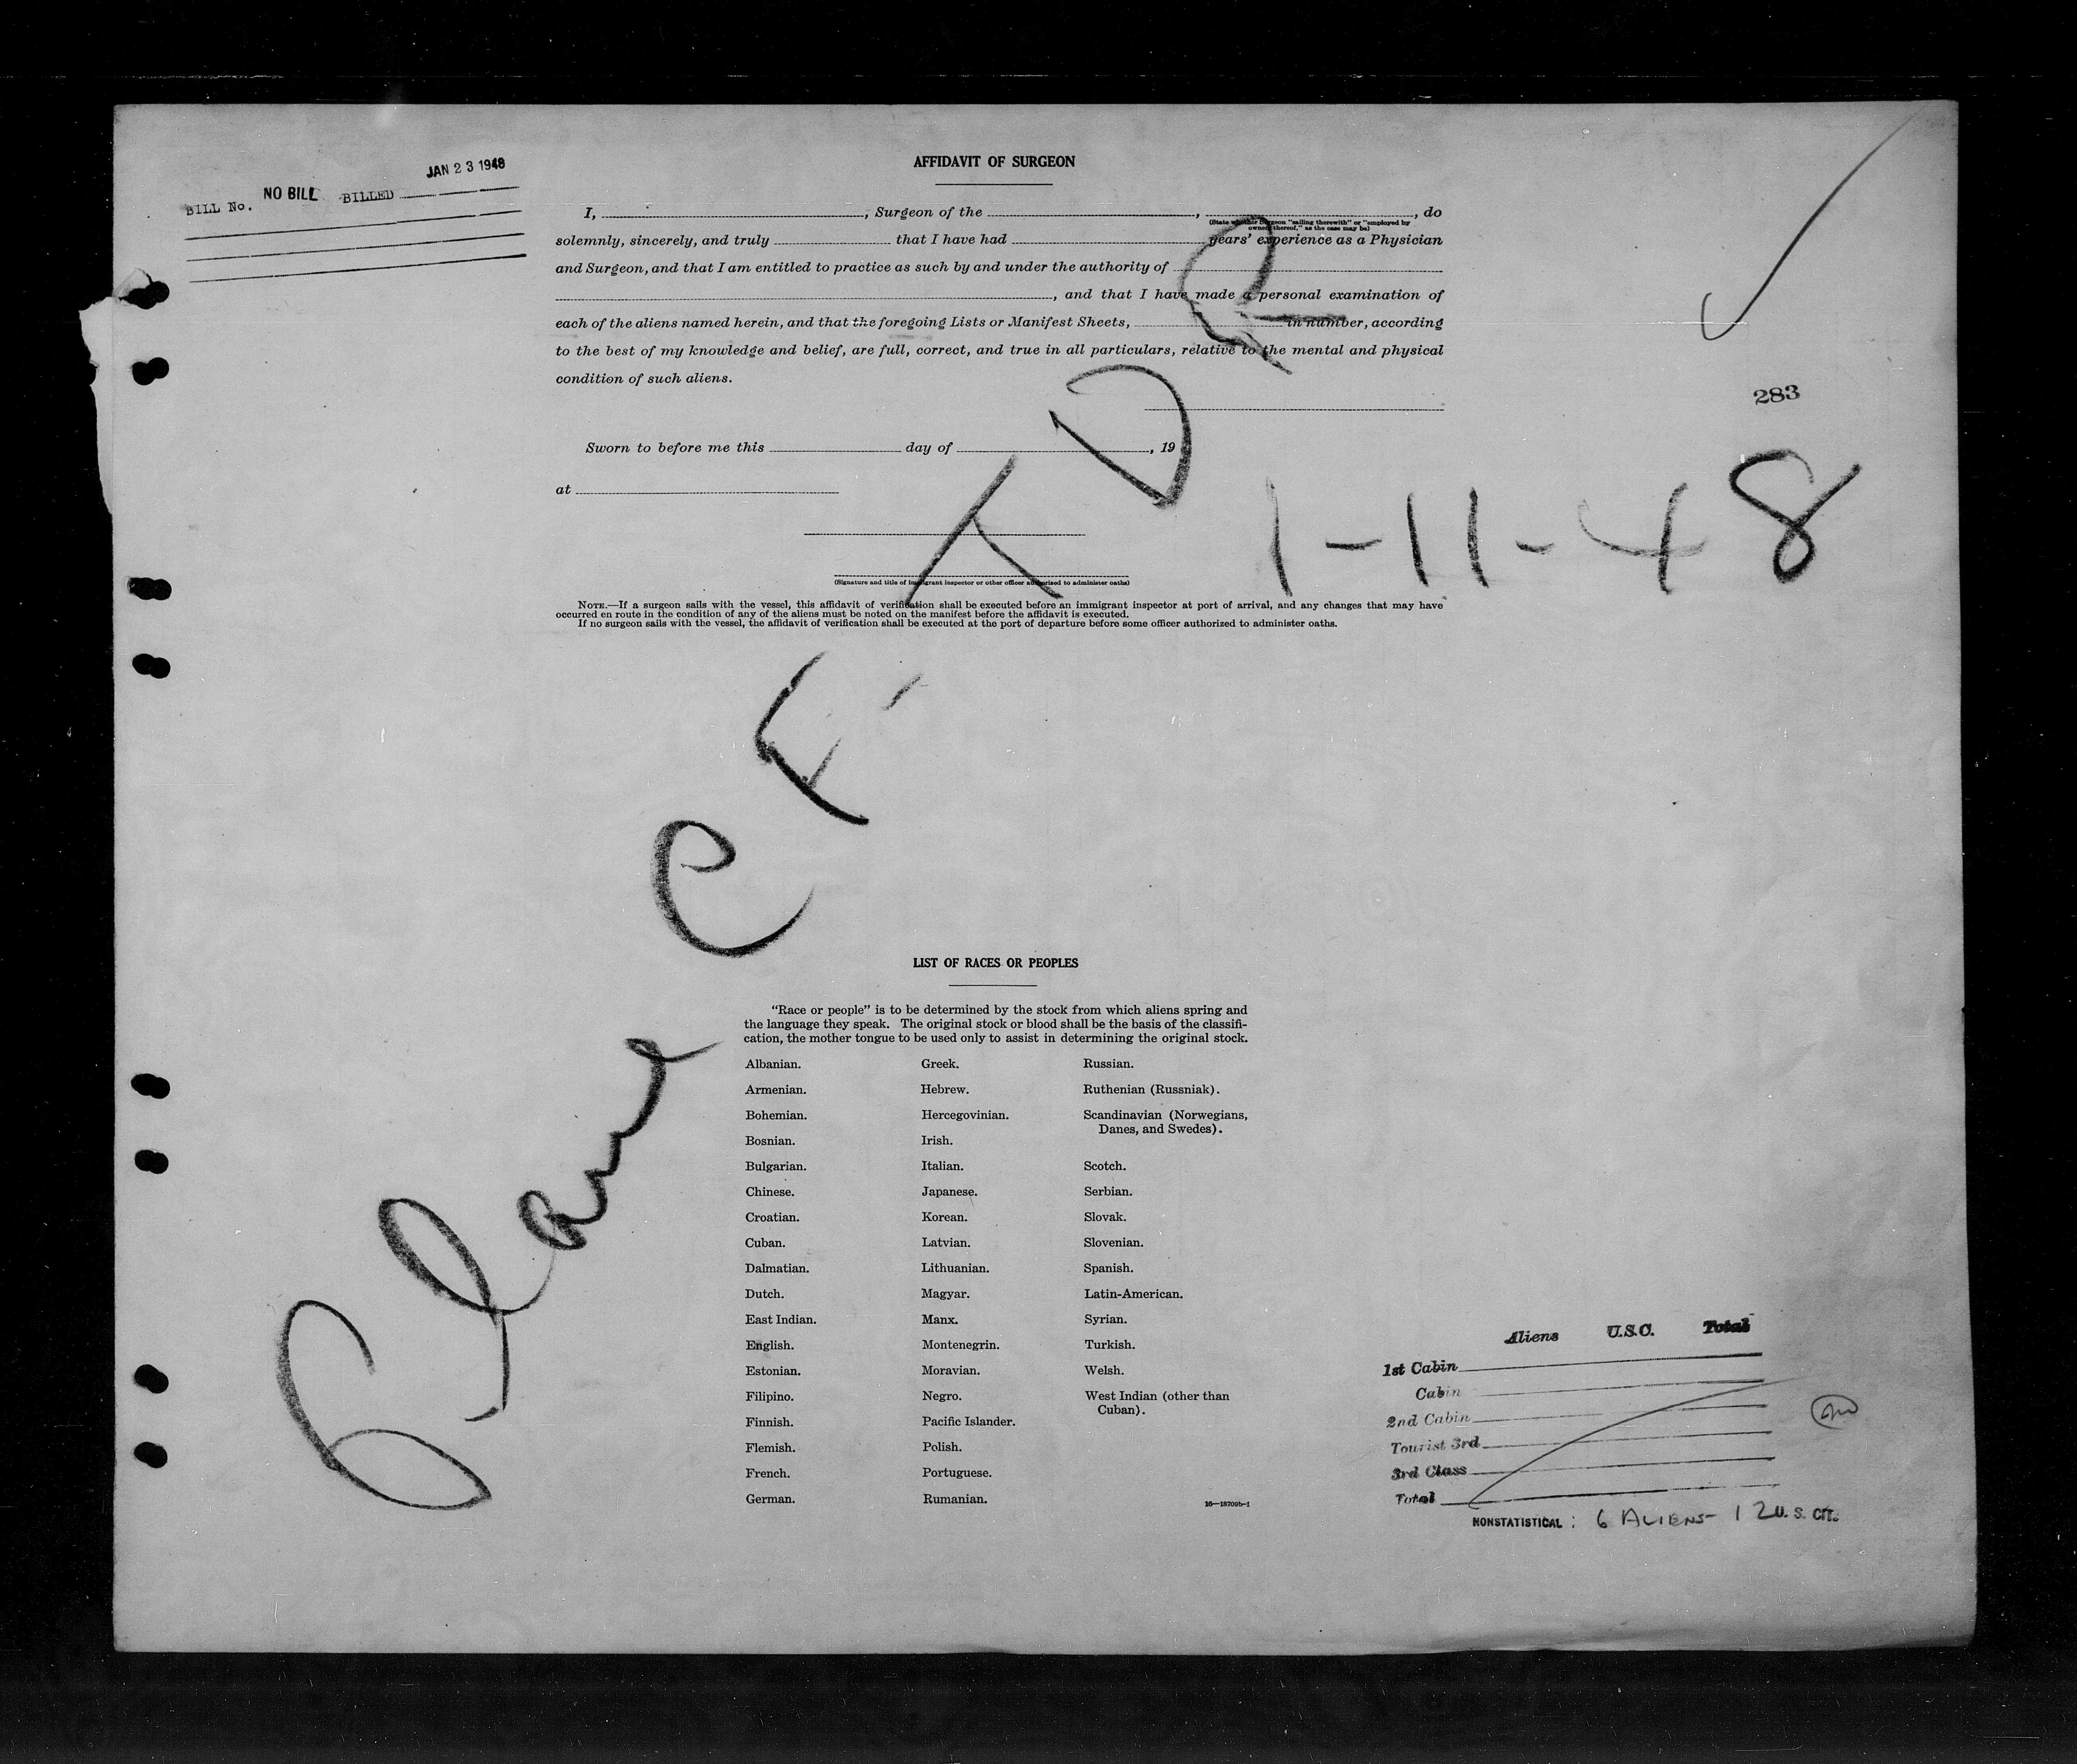 JAN 23 1948
BILL No. NO BILL BILLED
AFFIDAVIT OF SURGEON
I, , Surgeon of the , , do
(State whether Surgeon "sailing therewith" or "employed by
owners thereof," as the case may be)
solemnly, sincerely, and truly that I have had years' experience as a Physician
and Surgeon, and that I am entitled to practice as such by and under the authority of
, and that I have made a personal examination of
each of the aliens named herein, and that the foregoing Lists or Manifest Sheets, in number, according
to the best of my knowledge and belief, are full, correct, and true in all particulars, relative to the mental and physical
condition of such aliens.
283
Sworn to before me this day of , 19
at
1-11-48
(Signature and title of immigrant inspector or other officer authorized to administer oaths)
NOTE.—If a surgeon sails with the vessel, this affidavit of verification shall be executed before an immigrant inspector at port of arrival, and any changes that may have
occurred en route in the condition of any of the aliens must be noted on the manifest before the affidavit is executed.
If no surgeon sails with the vessel, the affidavit of verification shall be executed at the port of departure before some officer authorized to administer oaths.
Plane CF-TDR
LIST OF RACES OR PEOPLES
"Race or people" is to be determined by the stock from which aliens spring and
the language they speak. The original stock or blood shall be the basis of the classifi-
cation, the mother tongue to be used only to assist in determining the original stock.
Albanian.
Armenian.
Bohemian.
Bosnian.
Bulgarian.
Chinese.
Croatian.
Cuban.
Dalmatian.
Dutch.
East Indian.
English.
Estonian.
Filipino.
Finnish.
Flemish.
French.
German.
Greek.
Hebrew.
Hercegovinian.
Irish.
Italian.
Japanese.
Korean.
Latvian.
Lithuanian.
Magyar.
Manx.
Montenegrin.
Moravian.
Negro.
Pacific Islander.
Polish.
Portuguese.
Rumanian.
Russian.
Ruthenian (Russniak).
Scandinavian (Norwegians,
Danes, and Swedes).
Scotch.
Serbian.
Slovak.
Slovenian.
Spanish.
Latin-American.
Syrian.
Turkish.
Welsh.
West Indian (other than
Cuban).
16—18709b-1
Aliens U.S.C. Total
1st Cabin
Cabin
2nd Cabin
Tourist 3rd
3rd Class
Total
NONSTATISTICAL : 6 ALIENS- 12 U. S. CIT.